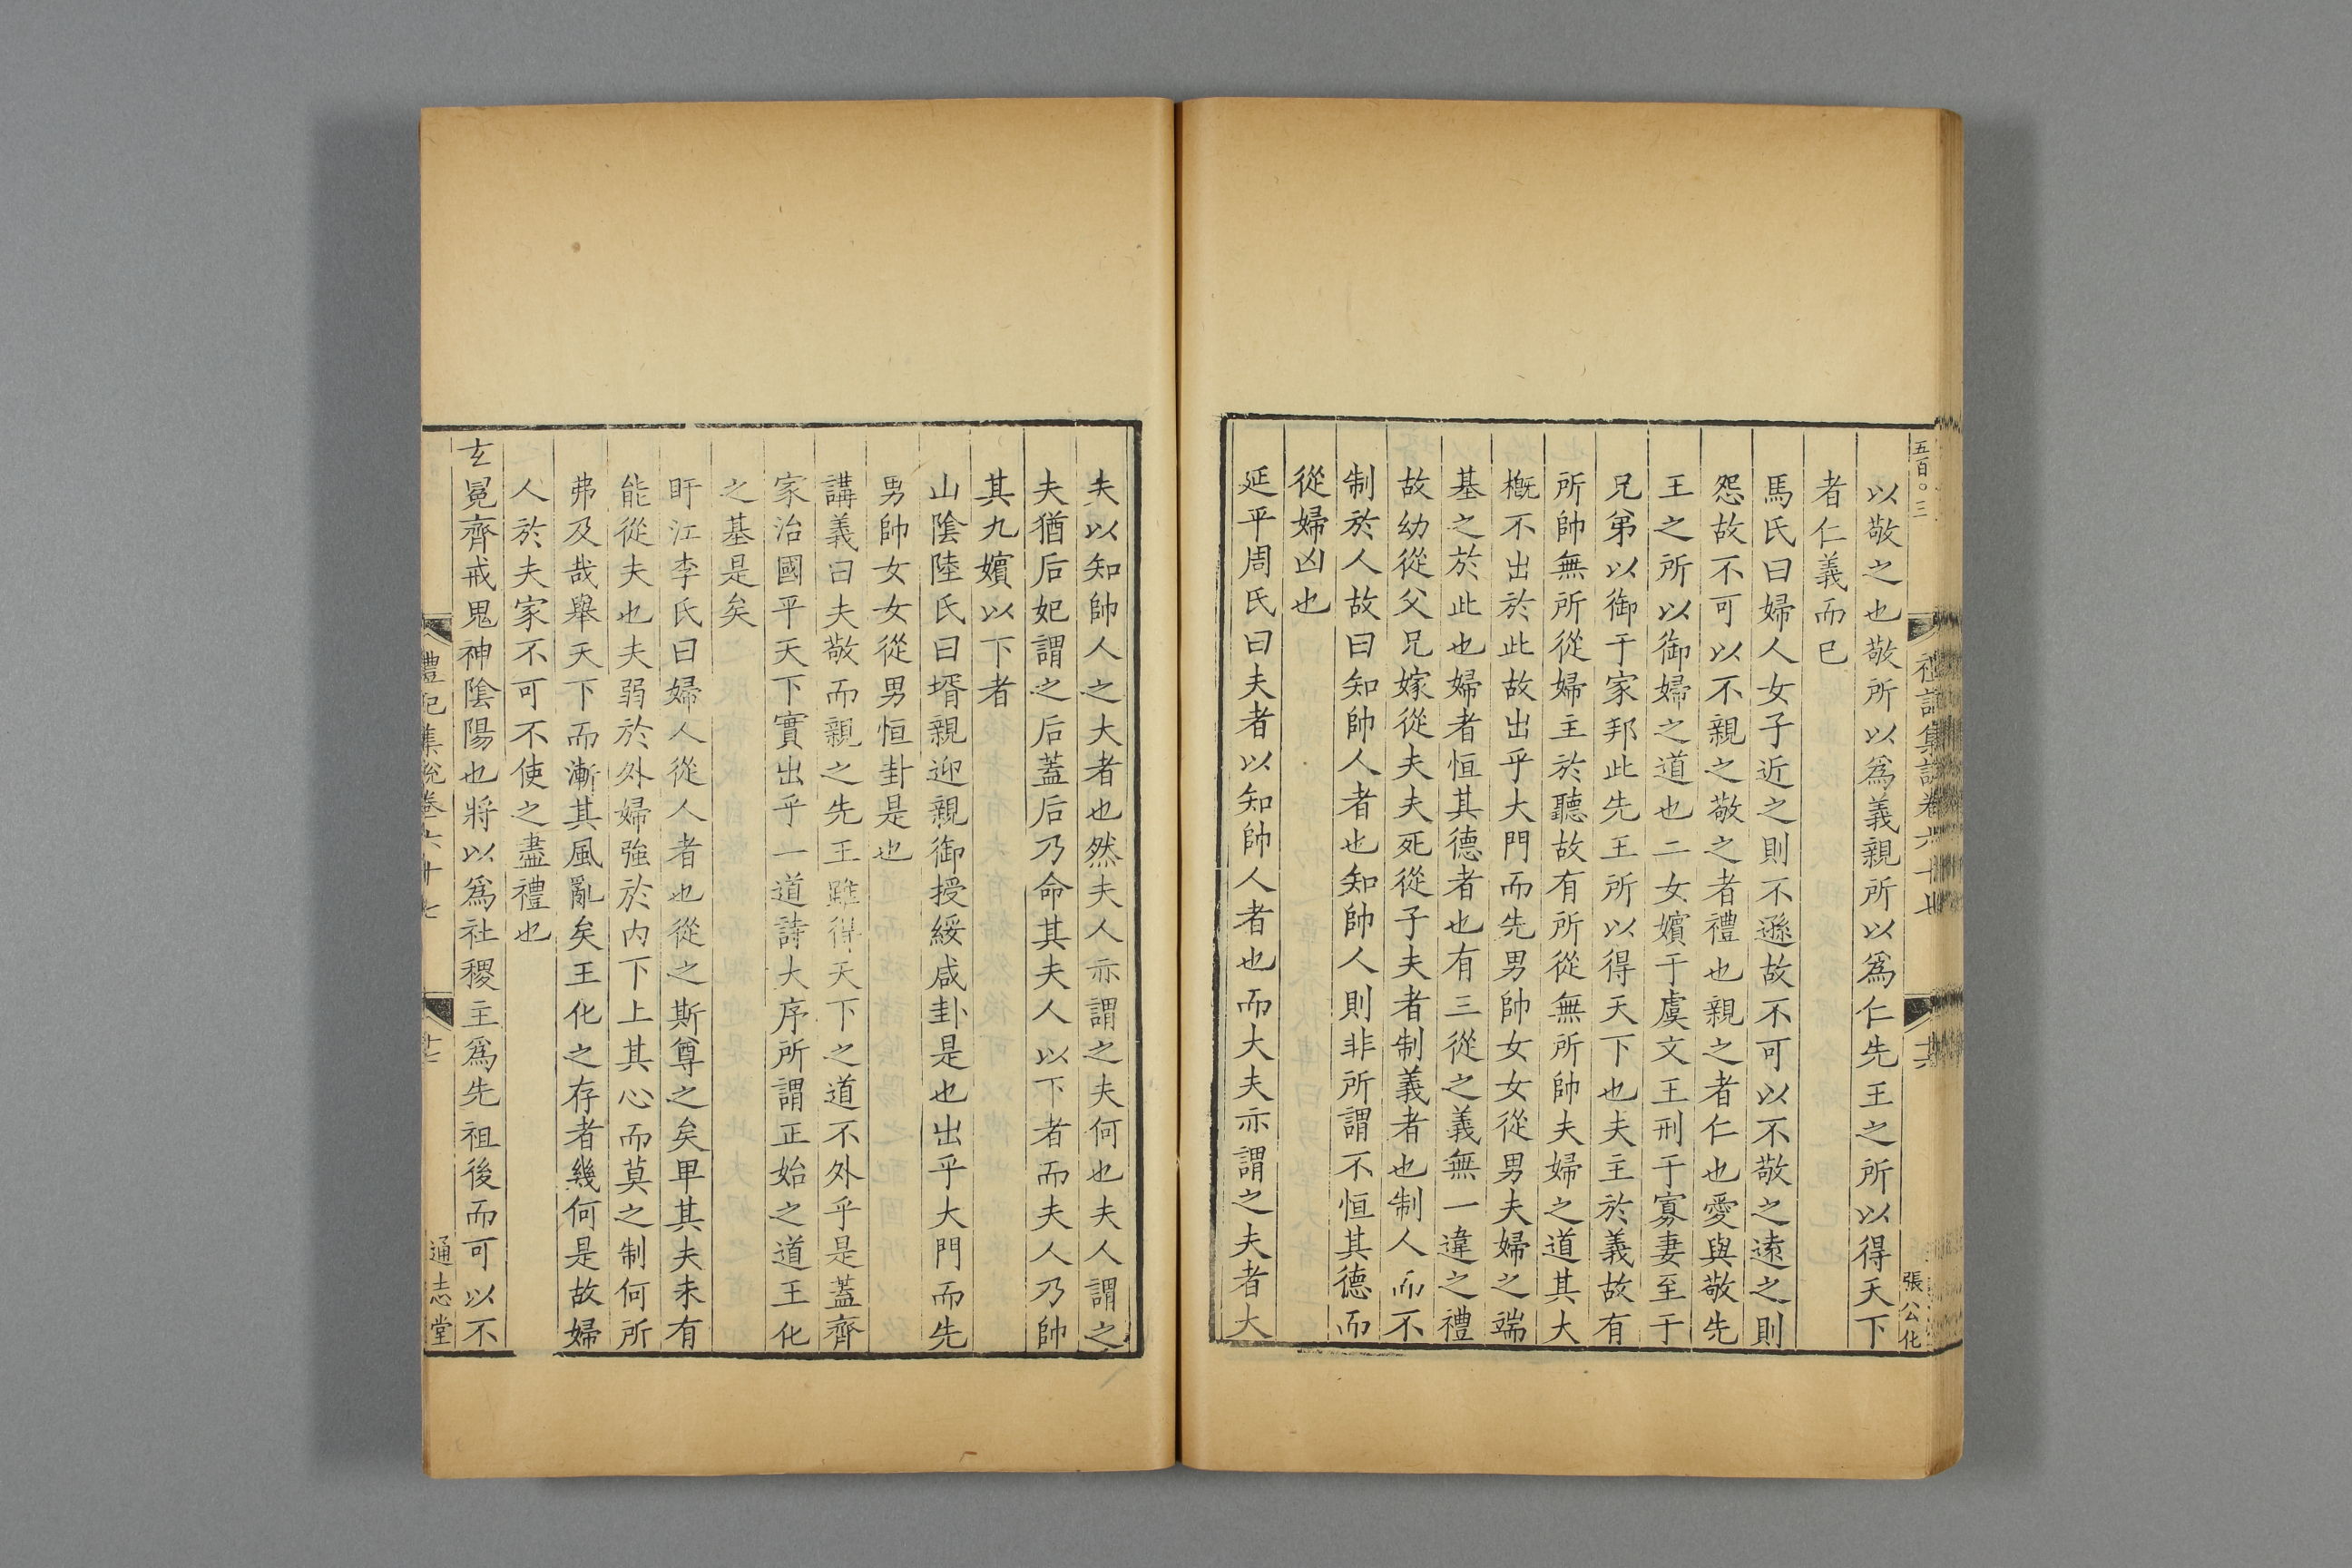 五百〇三
禮記集說卷六十七
張公化
以敬之也敬所以爲義親所以爲仁先王之所以得天下
者仁義而已
馬氏曰婦人女子近之則不遜故不可以不敬之遠之則
怨故不可以不親之敬之者禮也親之者仁也愛與敬先
王之所以御婦之道也二女嬪于虞文王刑于寡妻至于
兄弟以御于家邦此先王所以得天下也夫主於義故有
所帥無所從婦主於聽故有所從無所帥夫婦之道其大
概不出於此故出乎大門而先男帥女女從男夫婦之端
基之於此也婦者恒其德者也有三從之義無一違之禮
故幼從父兄嫁從夫夫死從子夫者制義者也制人而不
制於人故曰知帥人者也知帥人則非所謂不恒其德而
從婦凶也
延平周氏曰夫者以知帥人者也而大夫亦謂之夫者大
夫以知帥人之大者也然夫人亦謂之夫何也夫人謂之
夫猶后妃謂之后蓋后乃命其夫人以下者而夫人乃帥
其九嬪以下者
山陰陸氏曰壻親迎親御授綏咸卦是也出乎大門而先
男帥女女從男恒卦是也
講義曰夫敬而親之先王雖得天下之道不外乎是蓋齊
家治國平天下實出乎一道詩大序所謂正始之道王化
之基是矣
盱江李氏曰婦人從人者也從之斯尊之矣卑其夫未有
能從夫也夫弱於外婦強於內下上其心而莫之制何所
弗及哉舉天下而漸其風亂矣王化之存者幾何是故婦
人於夫家不可不使之盡禮也
玄冕齊戒鬼神陰陽也將以爲社稷主爲先祖後而可以不
禮記集說卷六十七
通志堂